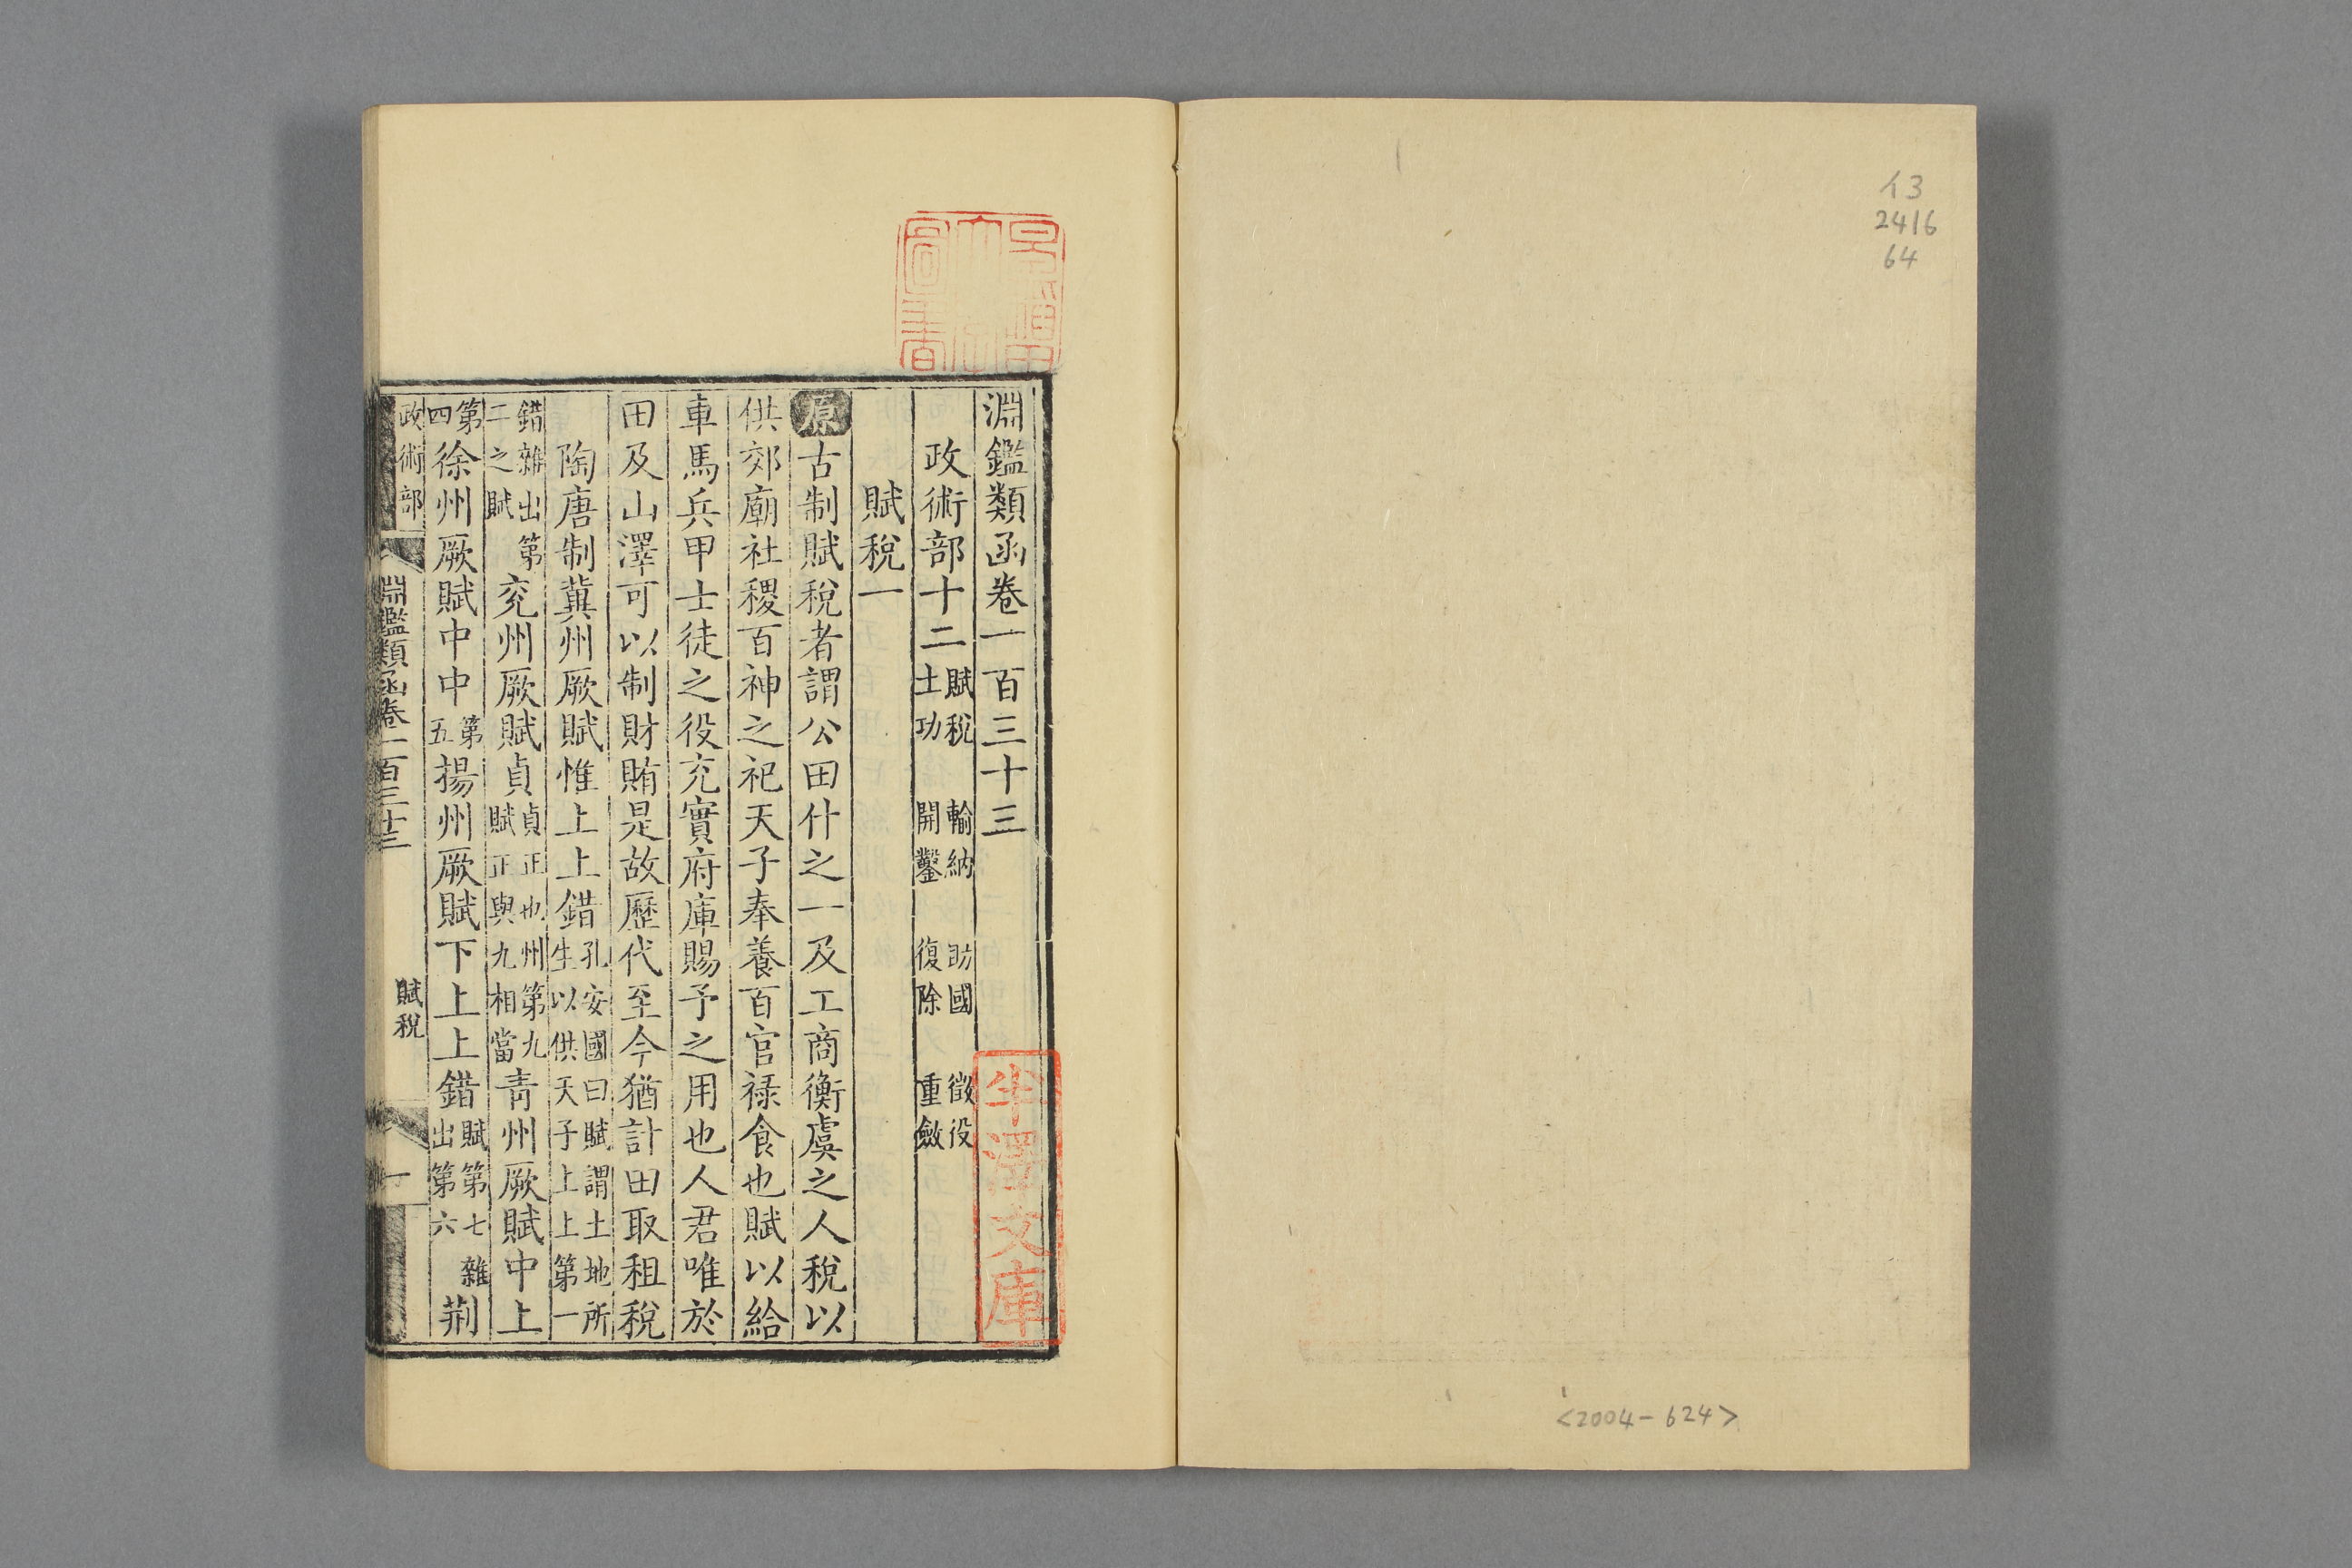 イ3
2416
64
<2004-624>
淵鑑類函卷一百三十三
政術部十二 賦稅 輸納 助國 徵役
土功 開鑿 復除 重斂
賦稅一
原古制賦稅者謂公田什之一及工商衡虞之人稅以
供郊廟社稷百神之祀天子奉養百官禄食也賦以給
車馬兵甲士徒之役充實府庫賜予之用也人君唯於
田及山澤可以制財賄是故歷代至今猶計田取租稅
陶唐制冀州厥賦惟上上錯孔安國曰賦謂土地所生以供天子上上第一
錯雜出第二之賦兖州厥賦貞貞正也州第九賦正與九相當青州厥賦中上
第四徐州厥賦中中第五揚州厥賦下上上錯賦第七雜出第六荆
政術部 淵鑑類函卷一百三十三 賦稅 一
半澤文庫